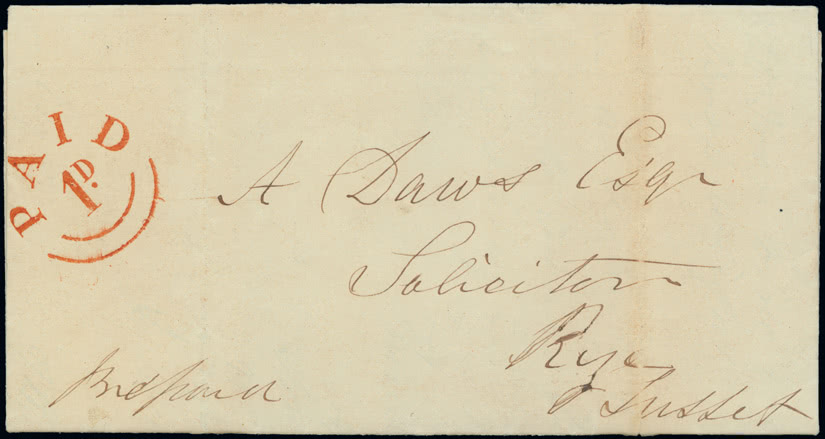 PAID
1D.
A Daws Esqr
Solicitor
Rye
Sussex
Prepaid